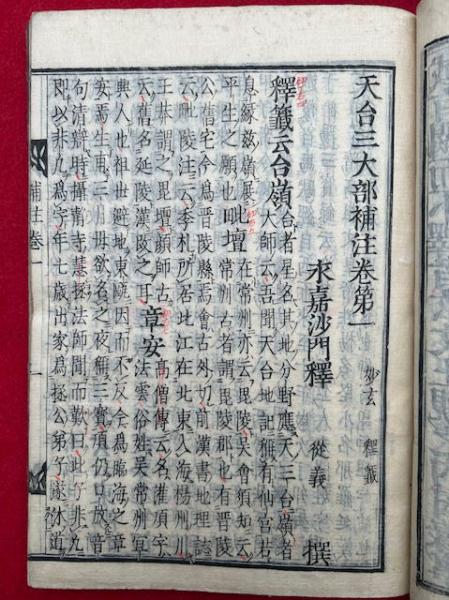 天台三大部補注卷第一 妙玄 釋籤
永嘉沙門釋 從義 撰
釋籤云台嶺 台者星名其地分野應天三台嶺者
大師云吾聞天台地記稱有仙宮若
息緣茲嶺展
平生之願也毗壇 在常州亦云毗陵天會須知云
常州古者謂毗陵郡也有晉陵
公舊宅今爲晉陵縣焉會古外切前漢書地理誌
云毗陵注云季札所居北江在北東入海楊州川
王莽謂之毗壇顏師古
云舊名延陵漢改之耳章安 高僧傳云名灌頂字
法雲俗姓吳常州
興人也祖世避地東甌因而不反今爲臨海之章
安焉生甫三月母欲名之夜稱三寶頂仍口放音
句清辯時攝靜寺慧拯法師聞而歎曰此子非凡
即以非凡爲字年七歲出家爲拯公弟子遂休道
補注卷一